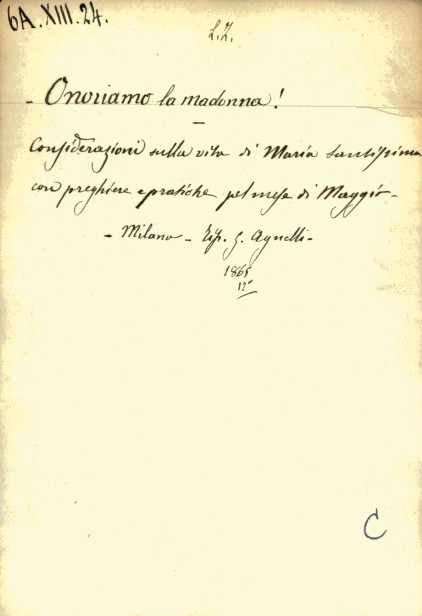 6A.XIII.24.
L.Z.
- Onoriamo la madonna!
Considerazioni sulla vita di Maria Santissima
con preghiere e pratiche pel mese di Maggio -
- Milano - Tip. G. Agnelli -
1865
12°
C